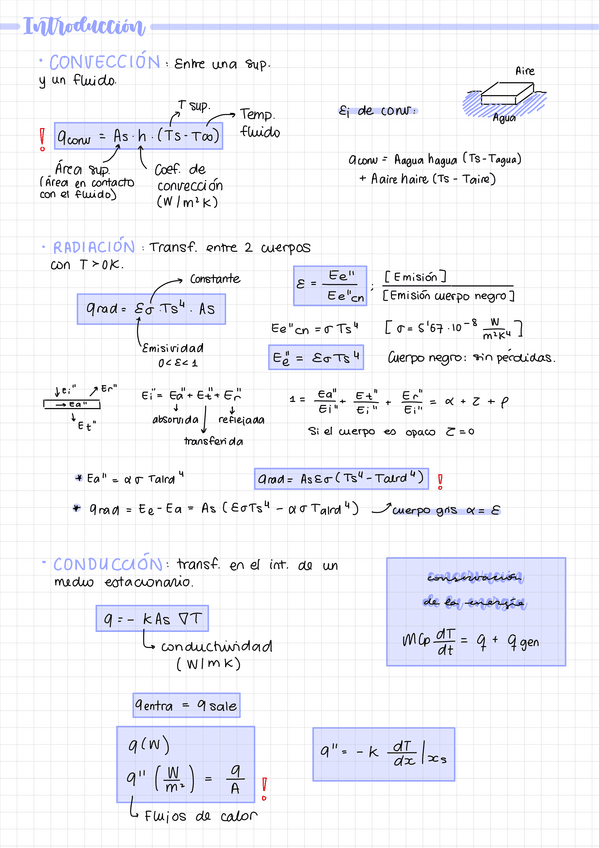 Introducción
· CONVECCIÓN : Entre una sup.
y un fluido.
T sup.
Temp.
fluido
! qconv = As · h · (Ts - T∞)
Área sup.
(Área en contacto
con el fluido)
Coef. de
convección
(W/m²K)
Ei de conv:
Aire
Agua
qconv = Aagua hagua (Ts - Tagua)
+ Aaire haire (Ts - Taire)
· RADIACIÓN : Transf. entre 2 cuerpos
con T > 0K.
Constante
qrad = εσ · Ts⁴ · As
Emisividad
0 < ε < 1
ε = Ee'' / Ee''cn ; [Emisión] / [Emisión cuerpo negro]
Ee''cn = σ Ts⁴ [σ = 5'67 · 10⁻⁸ W/m²K⁴]
Ee'' = εσTs⁴ Cuerpo negro: sin pérdidas.
Ei'' Er''
Ea''
Et''
Ei'' = Ea'' + Et'' + Er''
absorvida reflejada
transferida
1 = Ea''/Ei'' + Et''/Ei'' + Er''/Ei'' = α + τ + ρ
Si el cuerpo es opaco τ = 0
* Ea'' = α σ Talrd⁴ qrad = Asεσ (Ts⁴ - Talrd⁴) !
* qrad = Ee - Ea = As (εσTs⁴ - ασTalrd⁴) cuerpo gris α = ε
· CONDUCCIÓN : transf. en el int. de un
medio estacionario.
q = - kAs ∇T
conductividad
(W/mK)
conservación
de la energía
MCp dT/dt = q + qgen
qentra = qsale
q(W)
q'' (W/m²) = q/A !
Flujos de calor
q'' = - k dT/dx |xs